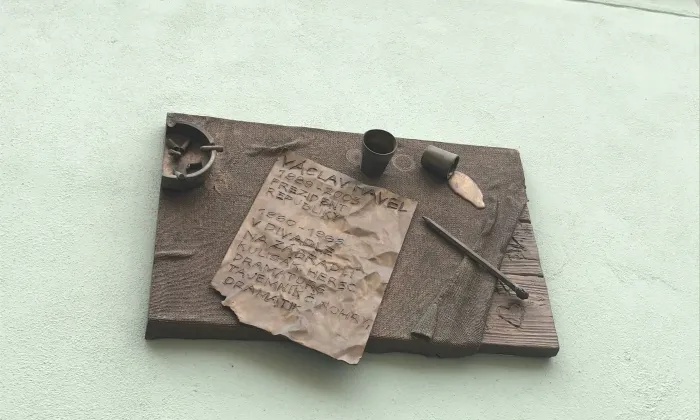 VÁCLAV HAVEL
1989-2003
PREZIDENT
REPUBLIKY
1960-1968
V DIVADLE
NA ZÁBRADLÍ
KULISÁK, HEREC
DRAMATURG
TAJEMNÍK Č. KOHRY
DRAMATIK